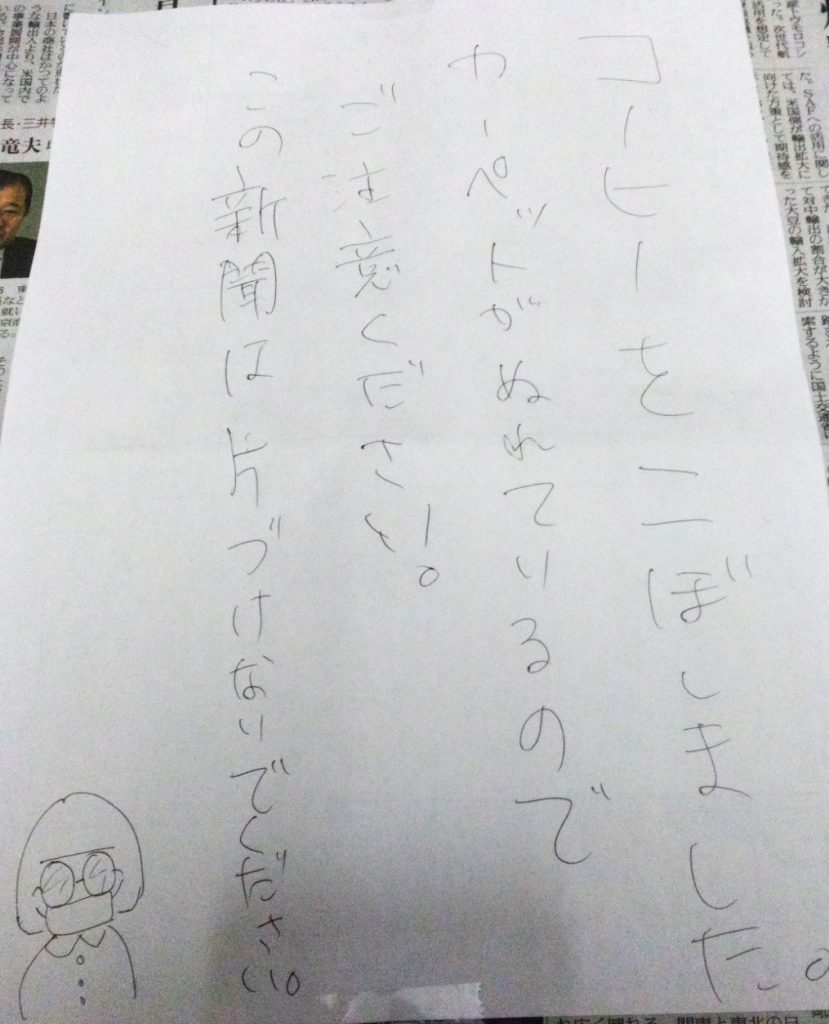 コーヒーをこぼしました。
カーペットがぬれているので
ご注意ください。
この新聞は片づけないでください。
た。SAFへの活用に関し
ては、米国側が輸出拡大に
向けた方策として期待感を
て対中輸出の割合が大きか
った大豆の輸入拡大を検討
索するように国土交通省
日本の商社はかつてのよ
うな輸出入より、米国内で
の事業展開が中心になって
長・三井物
竜夫